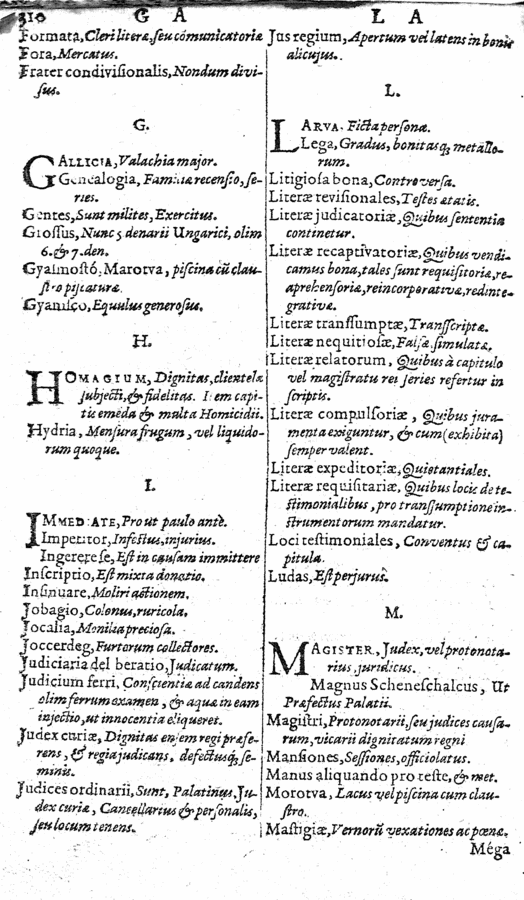 310 G A L A
Formata, Cleri literæ, seu cómunicatoriæ
Fora, Mercatus.
Frater condivisionalis, Nondum divi-
sus.
G.
GALLICIA, Valachia major.
Genealogia, Familiæ recensio, se-
ries.
Gentes, Sunt milites, Exercitus.
Grossus, Nunc 5 denarii Ungarici, olim
6. & 7. den.
Gyalmostó, Marotva, piscina cũ clau-
stro piscaturæ.
Gyamiso, Equulus generosus.
H.
HOMAGIUM, Dignitas, clientelæ
subjecti, & fidelitas. Item capi-
tis emẽda & multa Homicidii.
Hydria, Mensura frugum, vel liquido-
rum quoque.
I.
IMMEDIATE, Pro ut paulo antè.
Impetitor, Infestus, injurius.
Ingerere se, Est in causam immittere
Inscriptio, Est mixta donatio.
Insinuare, Moliri actionem.
Jobagio, Colonus, ruricola.
Jocalia, Monilia preciosa.
Joccerdeg, Furtorum collectores.
Judiciaria deliberatio, Judicatum.
Judicium ferri, Conscientia ad candens
olim ferrum examen, & aqua in eam
injectio, ut innocentia eliqueret.
Judex curiæ, Dignitas ensem regi præfe-
rens, & regia judicans, defectusq; se-
minis.
Judices ordinarii, Sunt, Palatinus, Ju-
dex curiæ, Cancellarius & personalis,
seu locum tenens.
Jus regium, Apertum vel latens in bonis
alicujus.
L.
LARVA. Ficta personæ.
Lega, Gradus, bonitasq; metallo-
rum.
Litigiosa bona, Controversa.
Literæ revisionales, Testes ætatis.
Literæ judicatoriæ, Quibus sententia
continetur.
Literæ recaptivatoriæ, Quibus vendi-
camus bona, tales sunt requisitoriæ, re-
aprehensoriæ, reincorporativæ, redinte-
grativæ.
Literæ transsumptæ, Transscriptæ.
Literæ nequitiosæ, Falsæ, simulatæ.
Literæ relatorum, Quibus à capitulo
vel magistratu rei series refertur in
scriptis.
Literæ compulsoriæ, Quibus jura-
menta exiguntur, & cum (exhibita)
semper valent.
Literæ expeditoriæ, Quietantiales.
Literæ requisitariæ, Quibus locis de te-
stimonialibus, pro transsumptione in-
strumentorum mandatur.
Loci testimoniales, Conventus & ca-
pitula.
Ludas, Est perjurus.
M.
MAGISTER, Judex, vel protonota-
rius, juridicus.
Magnus Scheneschalcus, Ut
Præfectus Palatii.
Magistri, Protonotarii, seu judices causa-
rum, vicarii dignitatum regni
Mansiones, Sessiones, officiolatus.
Manus aliquando pro teste, & met.
Morotva, Lacus vel piscina cum clau-
stro.
Mastigiæ, Vernorũ vexationes ac pœnæ.
Méga